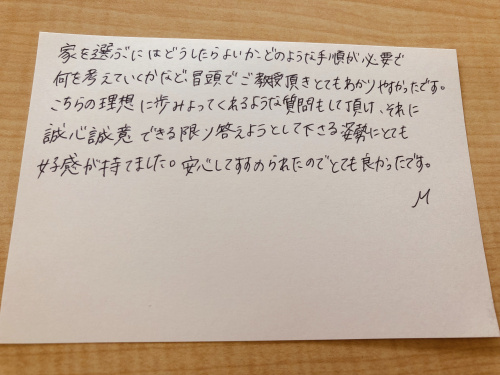 家を選ぶにはどうしたらよいか、どのような手順が必要で
何を考えていくかなど、冒頭でご教授頂きとてもわかりやすかったです。
こちらの理想に歩みよってくれるような質問もして頂け、それに
誠心誠意できる限り答えようとして下さる姿勢にとても
好感が持てました。安心してすすめられたのでとても良かったです。
M